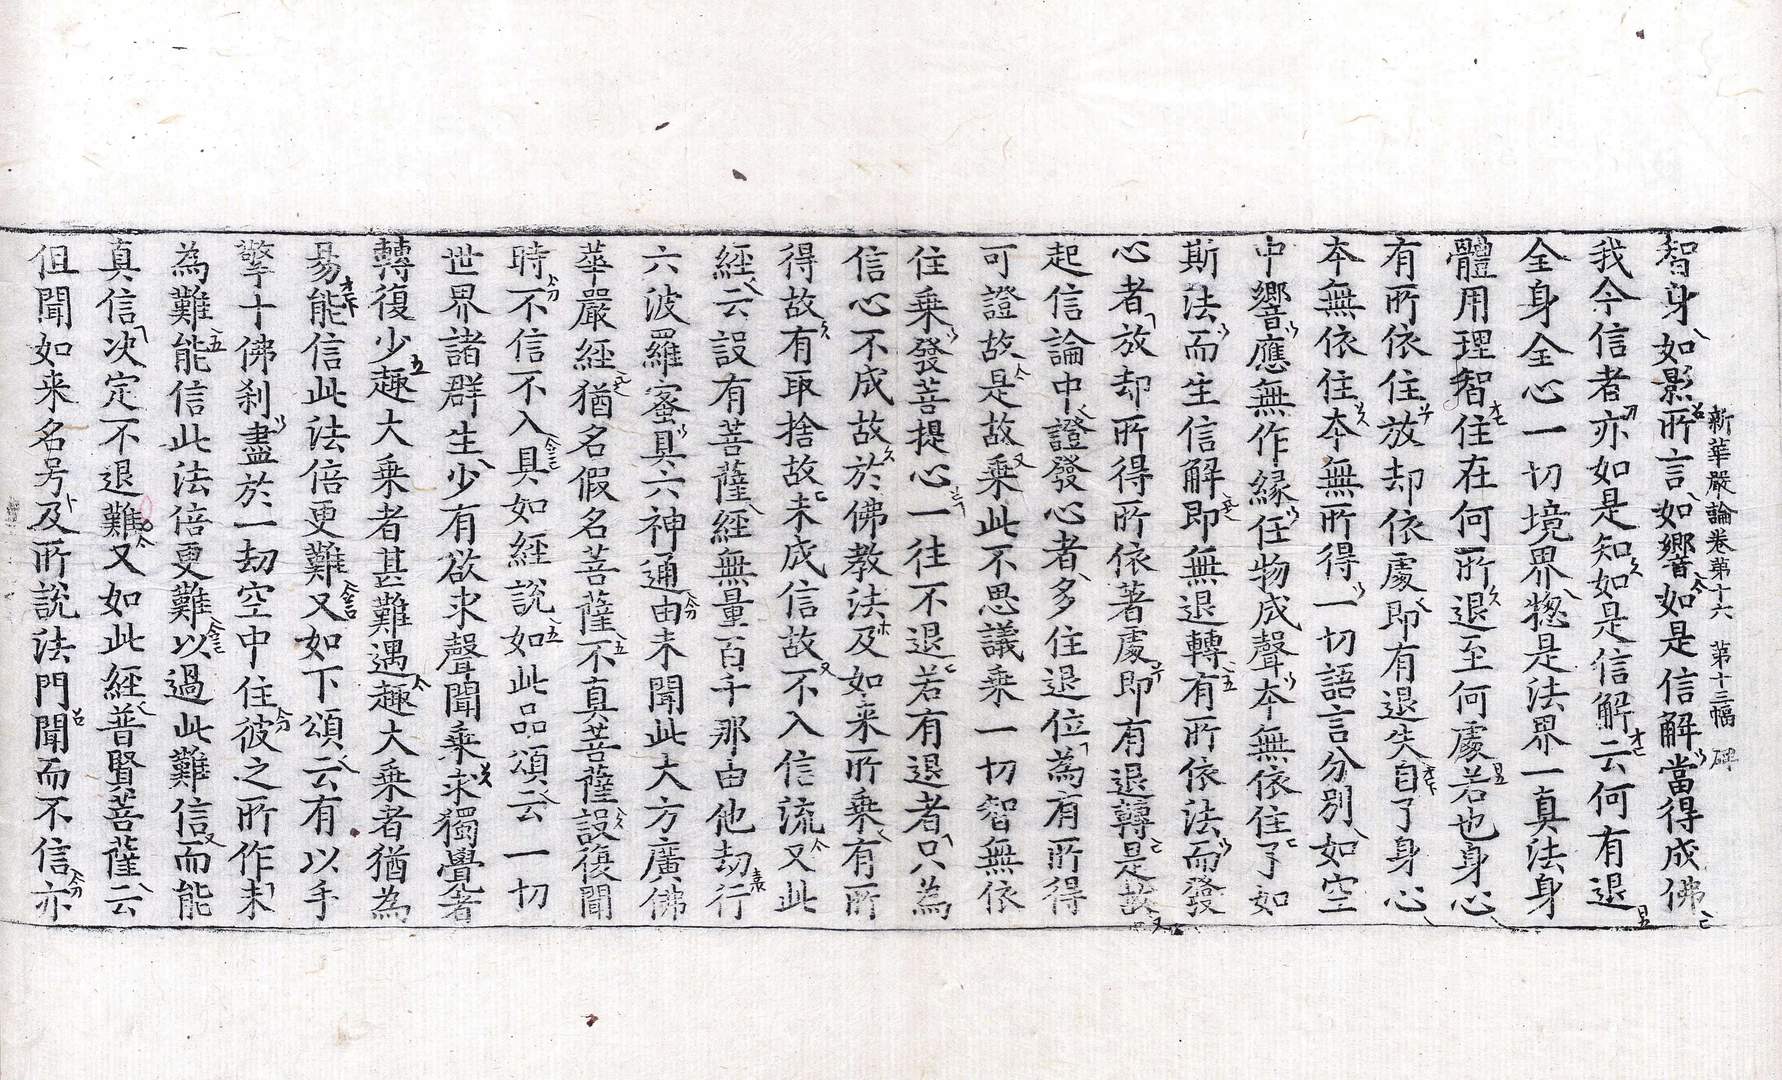 新華嚴論卷第十六 第十三幅 碑
智身如影所言如響如是信解當得成佛
我今信者亦如是知如是信解云何有退
全身全心一切境界惣是法界一真法身
體用理智住在何所退至何處若也身心
有所依住放却依處即有退失自了身心
本無依住本無所得一切語言分別如空
中響應無作緣任物成聲本無依住了如
斯法而生信解即無退轉有所依法而發
心者放却所得所依著處即有退轉是故
起信論中證發心者多住退位為有所得
可證故是故乘此不思議乘一切智無依
住乘發菩提心一往不退若有退者只為
信心不成故於佛教法及如来所乘有所
得故有取捨故未成信故不入信流又此
經云設有菩薩經無量百千那由他劫行
六波羅蜜具六神通由未聞此大方廣佛
華嚴經猶名假名菩薩不真菩薩設復聞
時不信不入具如經說如此品頌云一切
世界諸群生少有欲求聲聞乘求獨覺者
轉復少趣大乘者甚難遇趣大乘者猶為
易能信此法倍更難又如下頌云有以手
擎十佛刹盡於一劫空中住彼之所作未
為難能信此法倍更難以過此難信而能
真信决定不退難又如此經普賢菩薩云
但聞如来名号及所說法門聞而不信亦